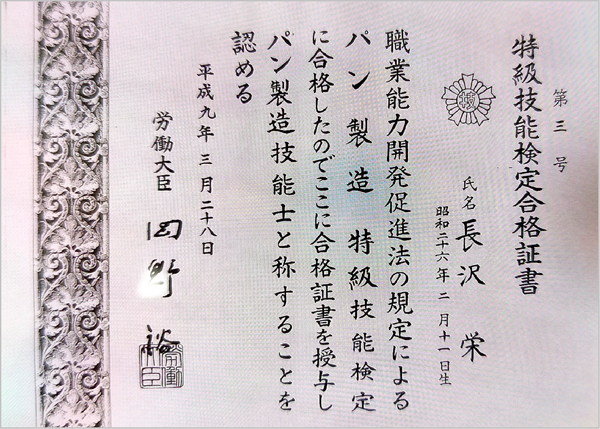 第三号
特級技能検定合格証書
技
氏名 長沢 栄
昭和二十六年二月十一日生
職業能力開発促進法の規定による
パン製造 特級技能検定
に合格したのでここに合格証書を授与し
パン製造技能士と称することを
認める
平成九年三月二十八日
労働大臣 岡野 裕
労働
大臣